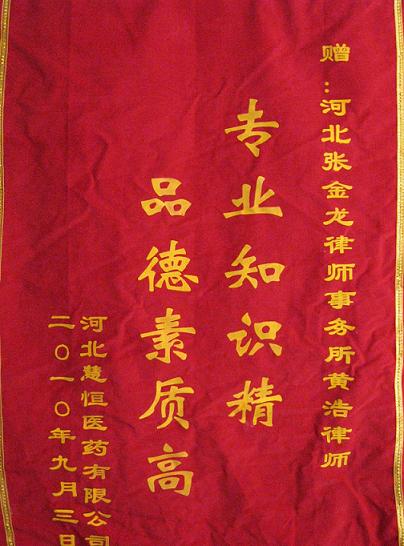 赠:河北张金龙律师事务所黄浩律师
专业知识精
品德素质高
河北慧恒医药有限公司
二〇一〇年九月三日